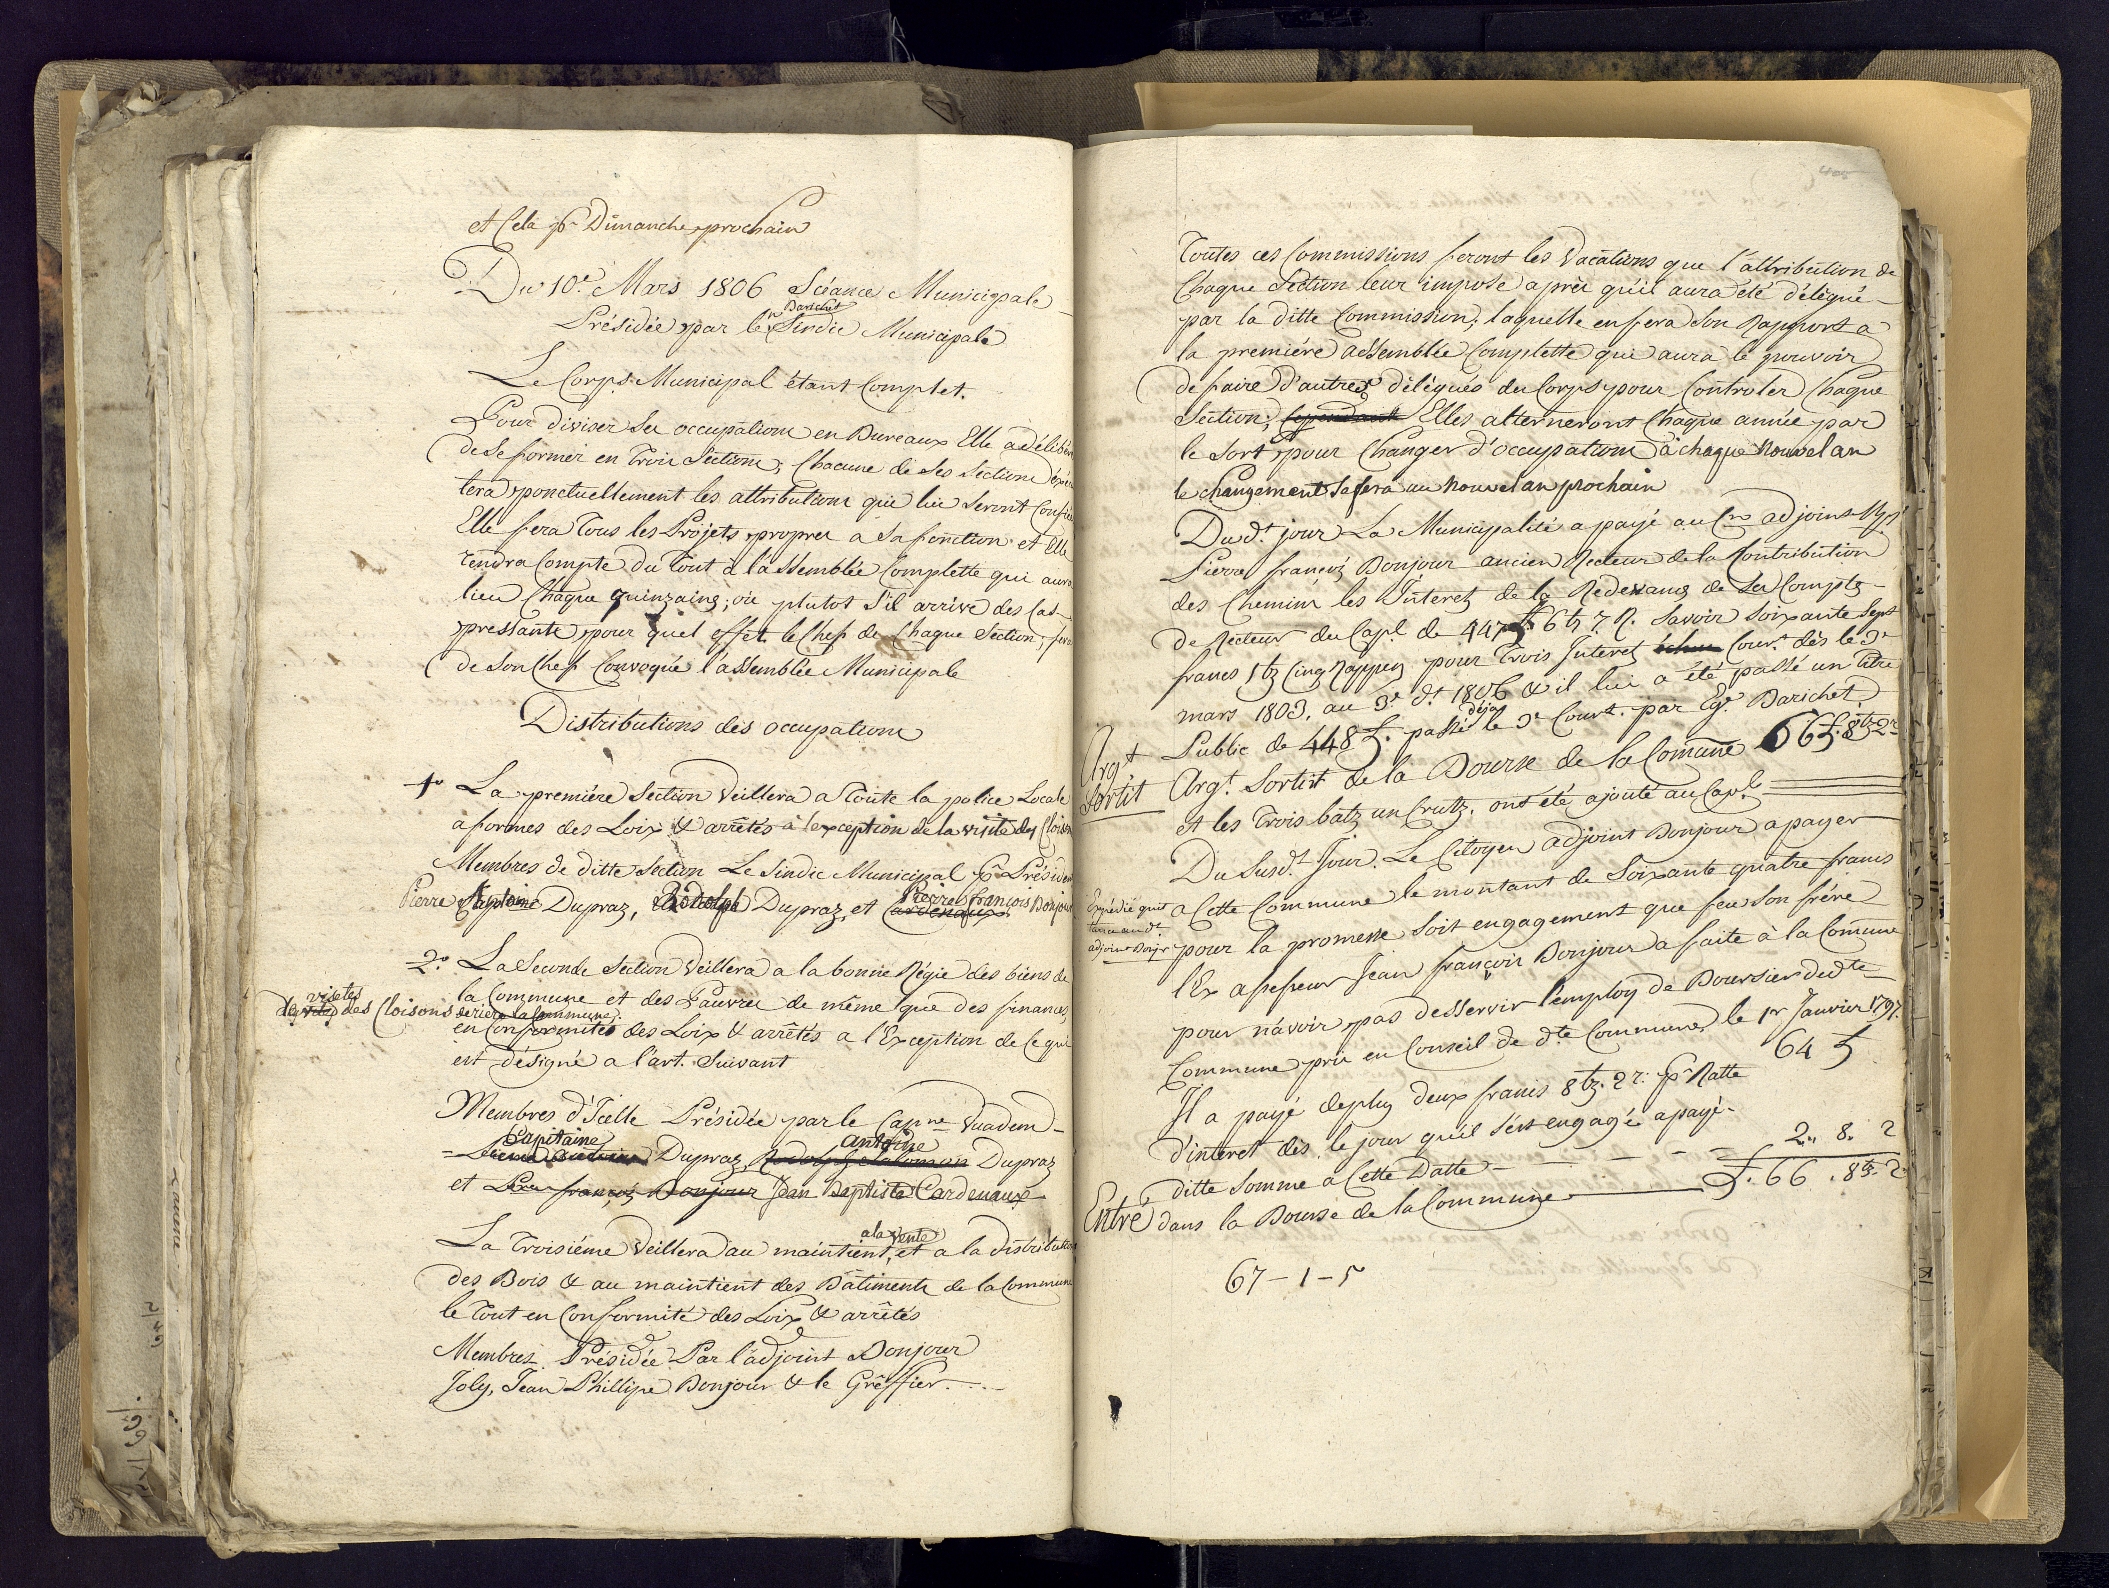 et Cela pr Dimanche prochain
Du 10e. Mars 1806 Séance Municipale
Barichet
Présidée par le Sindic Municipale
Le Corps Municipal étant Complet.
Pour diviser ses occupations en Bureaux Elle a délibéré
de se former en Trois Sections, Chacune de ses Sections éxécu
tera ponctuellement les attributions qui lui seront Confiées
Elle fera Tous les Projets propres à sa fonction et Elle
rendra Compte du Tout a l'assemblée Complette qui aura
lieu Chaque quinzaine, où plutot s'il arrive des Cas
pressants, pour quel effet le Chef de Chaque Section, fera
de son Chef Convoqué l'assemblée Municipale
Distributions des occupations
1o La première Section Veillera a Toute la police Locale
a formes des Loix & arrêtés à lexception de la visite des Cloisons
Membres de ditte Section Le Sindic Municipal pr Président
Pierre Antoine Dupraz, Rodolph Dupraz, et Cardenaux Pierre françois Bonjour
2o. La Seconde Section Veillera a la bonne Régie des biens de
la Commune et des Pauvres de même que des finances,
visetes
des Cloisons deriére la Commune,
en Conformités des Loix & arrêtés a l'Exception de Ce qui
est désigné a l'art. Suivant
Membres d'Icelle Présidée par le Capne Vuadens
Capitaine antoine
Dupraz, Rodolph Salomon Dupraz
et Pierre françois Bonjour Jean Baptiste Cardenaux
a la vente
La Troisiéme Veillera au maintient, et a la distribution
des Bois & au maintient des Bâtiments de la Commune
le Tout en Conformité des Loix & arrêtés
Membres Présidée Par l'adjoint Bonjour
Joly, Jean Phillipe Bonjour & le Gréffier.
405
Toutes ces Commissions feront les Vacations que l'attribution de
Chaque Section leur impose après qu'il aura été délégué
par la ditte Commission, laquelle en fera Son Rapport a
la premiére assemblée Complette qui aura le pouvoir
de faire d'autres délégués du Corps pour Controler Chaque
Section; Cependant Elles alterneront Chaque année par
le Sort, pour Changer d'occupations à chaque Nouvel an
le changement se fera au nouvel an prochain
Du dt. jour La Municipalité a payé au Cen adjoint
Pierre françois Bonjour ancien Recteur de la Contribution
des Chemins les Interets de la Redevance de Ses Comptes
de Recteur du Capl. de 447 f. 6 bz 7 R. Savoir Soixante Sept
francs 1 bz Cinq Rappes pour Trois Interets Cour. dès le 3e
mars 1803. au 3e dt 1806 & il lui a été passé un Titre
déja
Public de 448 f. passé le 3e Court. par Egr. Barichet.
Argt
Sortit
Argt. Sortit de la Bourse de la Comune 66 f. 8 bz 2 r
et les Trois batz un Crutz. ont été ajouté au Capl.
Du Susdt. Jour. Le Citoyen adjoint Bonjour a payer
a Cette Commune le montant de Soixante quatre francs
Expédié quit
tance au dt.
adjoint Bonjr
pour la promesse soit engagement que feu son frére
l'Ex assesseur Jean françois Bonjour a faite à la Comune
pour n'avoir pas desservir l'employ de Boursier de dte
Commune pris en Conseil de dte Commune, le 1er Janvier 1797.
64 f
Il a payé de plus deux francs 8 bz. 2 r. pr Ratte
d'interet dès le jour qu'il s'est engagé a payé
ditte Somme a Cette Datte - - - - 2. 8. 2
Entré dans la Bourse de la Commune f. 66. 8 bz. 2
67 - 1 - 5